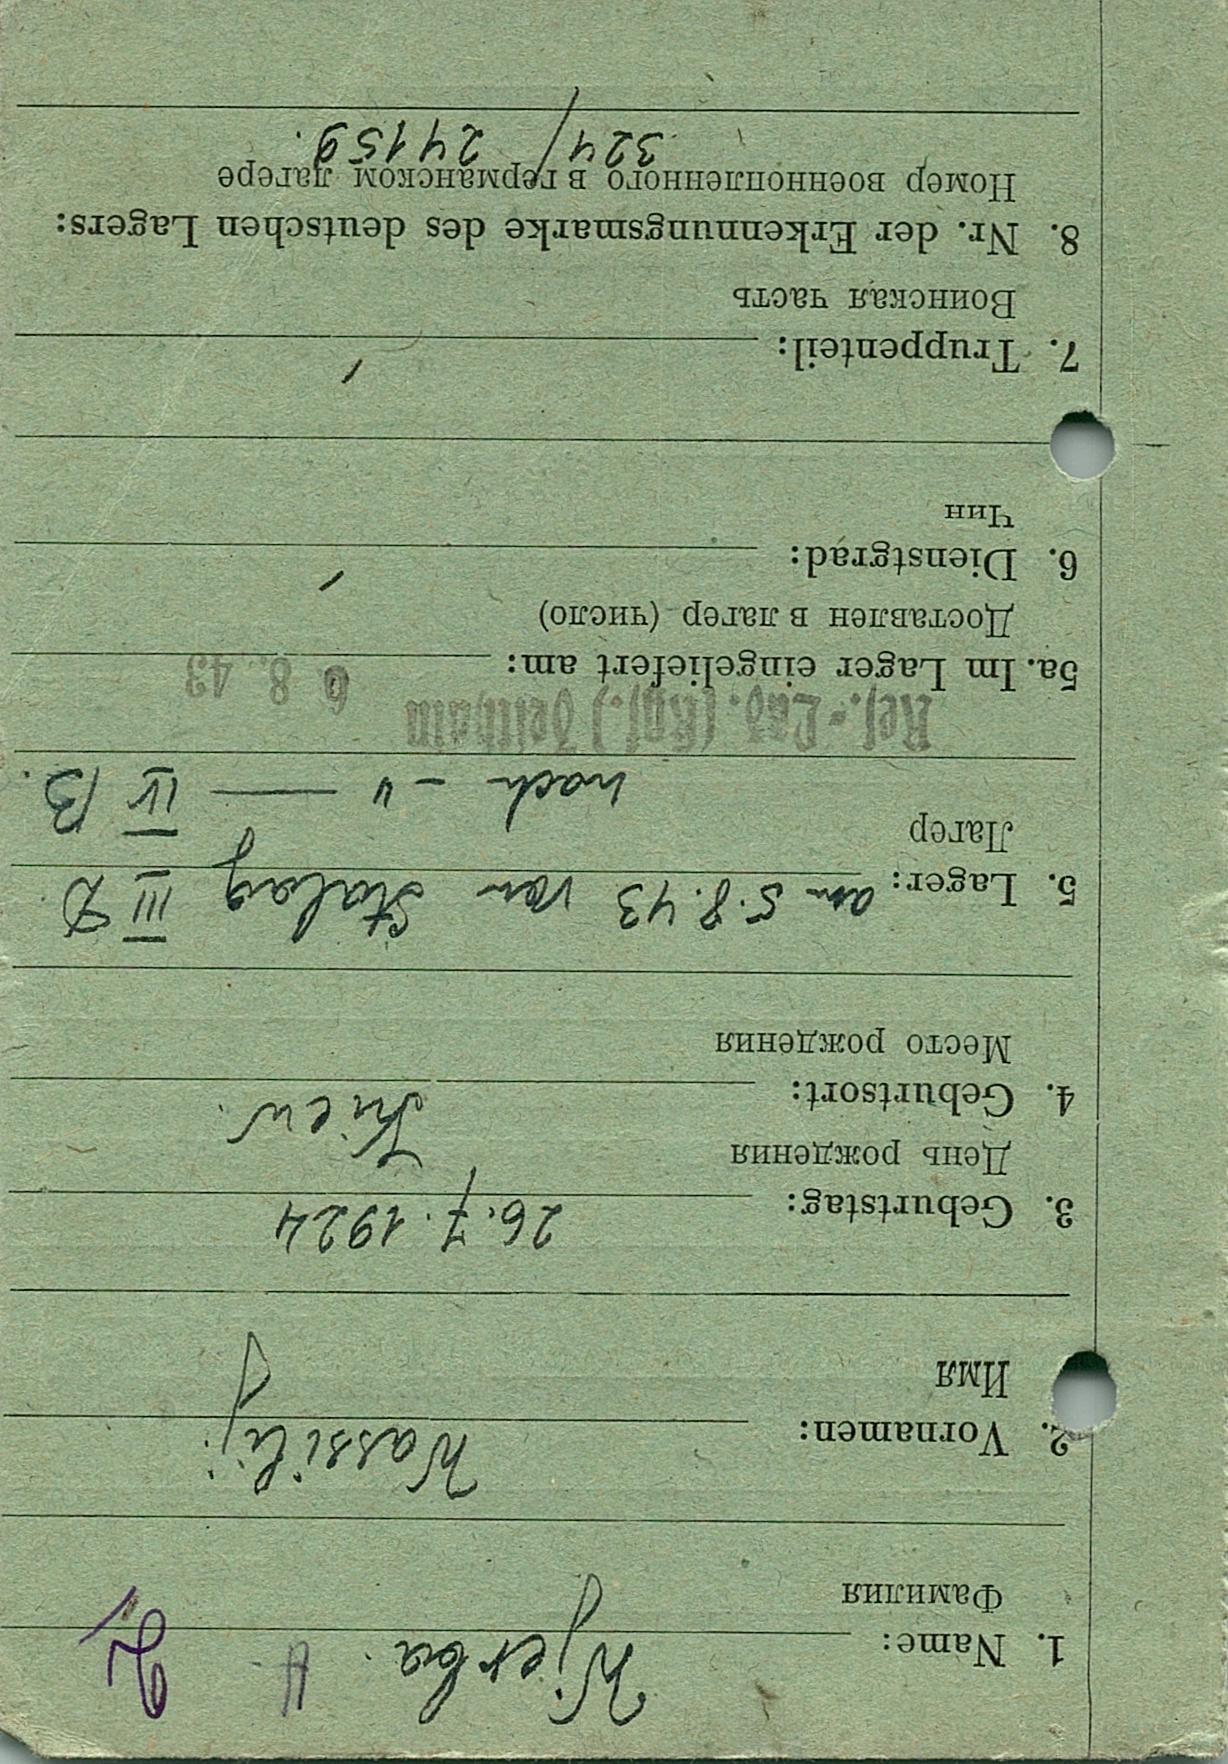 1. Name: Wjerba. H
Фамилия
2. Vornamen: Wassilij
Имя
3. Geburtstag: 26.7.1924
День рождения
4. Geburtsort: Kiew.
Место рождения
5. Lager: am 5.8.43 von Stalag III D
Лагер
nach - " — IV B.
Res.-Laz. (Kgf.) Zeithain
5a. Im Lager eingeliefert am: 6. 8. 43
Доставлен в лагер (число)
6. Dienstgrad:
Чин
7. Truppenteil:
Воинская часть
8. Nr. der Erkennungsmarke des deutschen Lagers:
Номер военнопленного в германском лагере
324/24159.